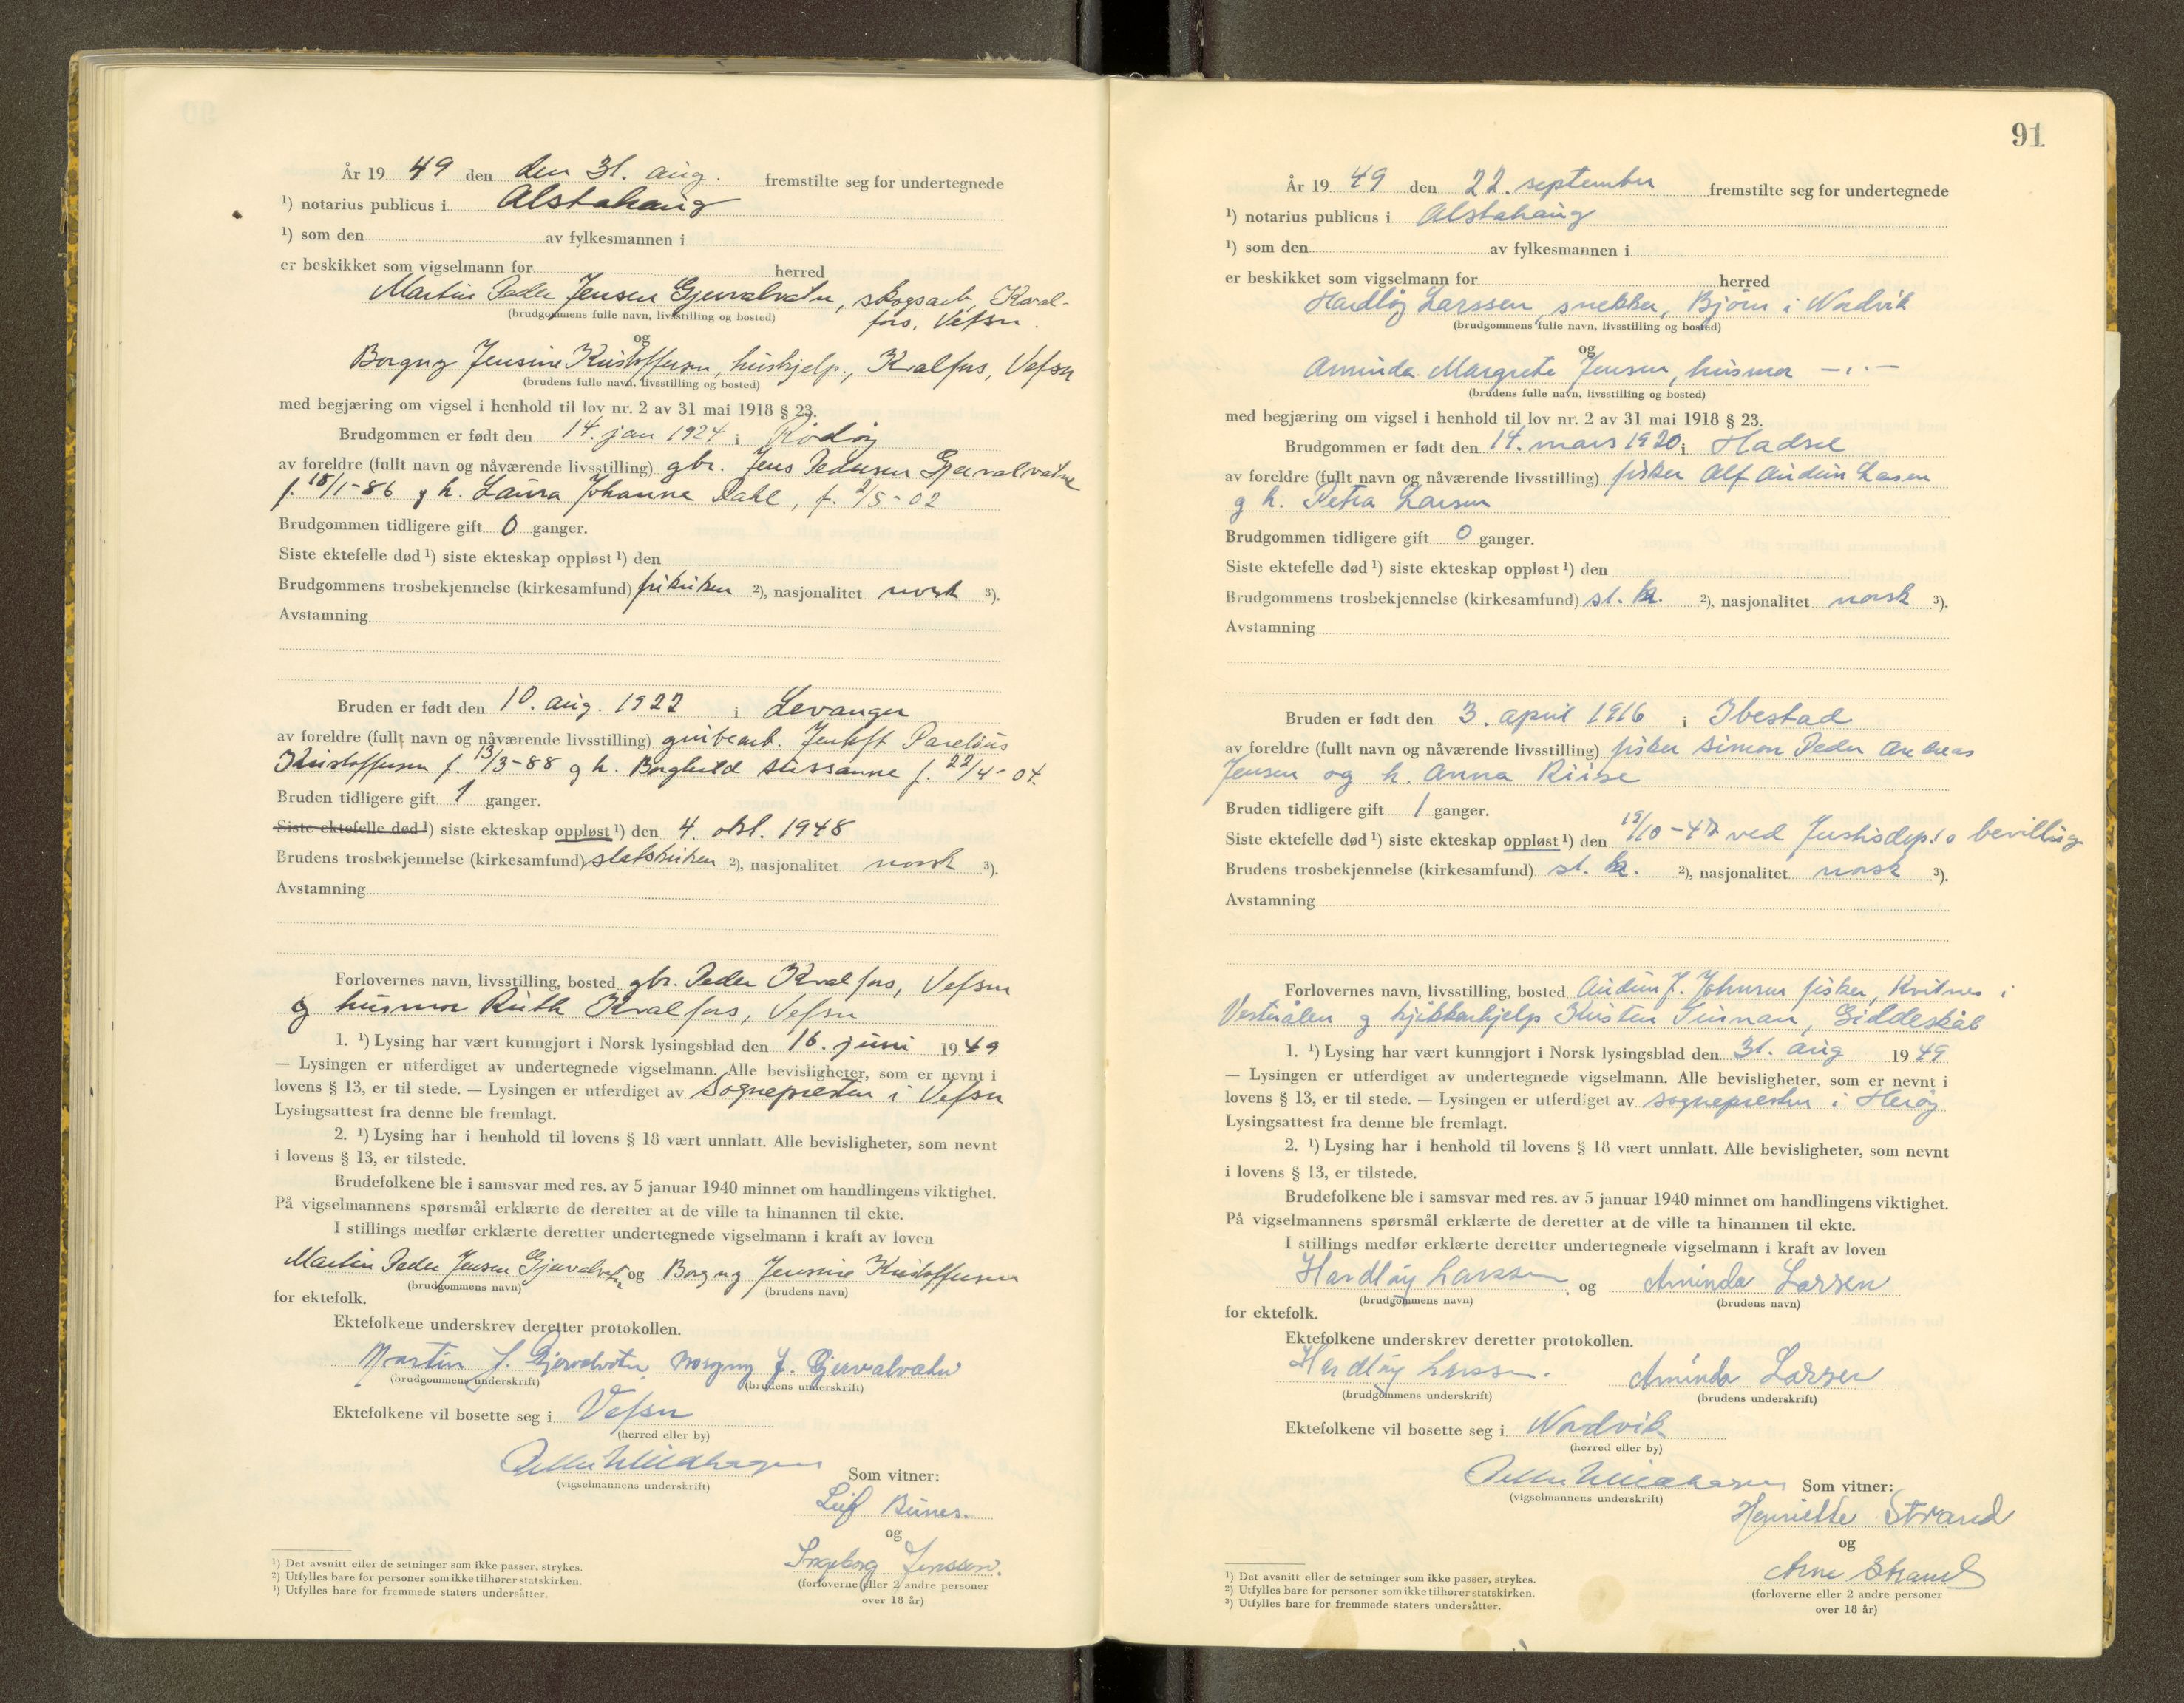 År 19 49 den den 31. aug. fremstilte seg for undertegnede
¹) notarius publicus i Alstahaug
¹) som den av fylkesmannen i
er beskikket som vigselmann for herred
Martin Peder Jensen Gjervalvatn, skogsarb, Kval-
fors, Vefsn.
(brudgommens fulle navn, livsstilling og bosted)
og
Borgny Jensine Kristoffersen, hushjelp., Kvalfors, Vefsn
(brudens fulle navn, livsstilling og bosted)
med begjæring om vigsel i henhold til lov nr. 2 av 31 mai 1918 § 23.
Brudgommen er født den 14. jan 1924 i Rødøy
av foreldre (fullt navn og nåværende livsstilling) gbr. Jens Pedersen Gjervalvatn
f. 18/1-86 g h. Laura Johanne Dahl, f. 2/5-02
Brudgommen tidligere gift 0 ganger.
Siste ektefelle død ¹) siste ekteskap oppløst ¹) den
Brudgommens trosbekjennelse (kirkesamfund) frikirken ²), nasjonalitet norsk ³).
Avstamning
Bruden er født den 10. aug. 1922 i Levanger
av foreldre (fullt navn og nåværende livsstilling) grubearb. Jentoft Parelius
Kristoffersen f. 13/3-88 g h. Borghild Sussanne f. 22/4-04.
Bruden tidligere gift 1 ganger.
Siste ektefelle død ¹) siste ekteskap oppløst ¹) den 4. okt. 1948
Brudens trosbekjennelse (kirkesamfund) statskirken ²), nasjonalitet norsk ³).
Avstamning
Forlovernes navn, livsstilling, bosted gbr. Peder Kvalfors, Vefsn
og husmor Ruth Kvalfors, Vefsn
1. ¹) Lysing har vært kunngjort i Norsk lysingsblad den 16. juni 1949
— Lysingen er utferdiget av undertegnede vigselmann. Alle bevisligheter, som er nevnt i
lovens § 13, er til stede. — Lysingen er utferdiget av Sognepresten i Vefsn
Lysingsattest fra denne ble fremlagt.
2. ¹) Lysing har i henhold til lovens § 18 vært unnlatt. Alle bevisligheter, som nevnt
i lovens § 13, er tilstede.
Brudefolkene ble i samsvar med res. av 5 januar 1940 minnet om handlingens viktighet.
På vigselmannens spørsmål erklærte de deretter at de ville ta hinannen til ekte.
I stillings medfør erklærte deretter undertegnede vigselmann i kraft av loven
Martin Peder Jensen Gjervalvatn og Borgny Jensine Kristoffersen
(brudgommens navn) (brudens navn)
for ektefolk.
Ektefolkene underskrev deretter protokollen.
Martin J. Gjervalvatn. Borgny J. Gjervalvatn
(brudgommens underskrift) (brudens underskrift)
Ektefolkene vil bosette seg i Vefsn
(herred eller by)
(vigselmannens underskrift)
Som vitner:
Leif Bünes.
og
Ingeborg Jenssen.
(forloverne eller 2 andre personer
over 18 år)
¹) Det avsnitt eller de setninger som ikke passer, strykes.
²) Utfylles bare for personer som ikke tilhører statskirken.
³) Utfylles bare for fremmede staters undersåtter.
91
År 19 49 den 22. september fremstilte seg for undertegnede
¹) notarius publicus i Alstahaug
¹) som den av fylkesmannen i
er beskikket som vigselmann for herred
Hardløy Larssen, snekker, Bjørn i Nordvik
(brudgommens fulle navn, livsstilling og bosted)
og
Aminda Margrete Jensen, husmor —„—
(brudens fulle navn, livsstilling og bosted)
med begjæring om vigsel i henhold til lov nr. 2 av 31 mai 1918 § 23.
Brudgommen er født den 14. mars 1920 i Hadsel
av foreldre (fullt navn og nåværende livsstilling) fisker Alf Audun Larsen
g h. Petra Larsen
Brudgommen tidligere gift 0 ganger.
Siste ektefelle død ¹) siste ekteskap oppløst ¹) den
Brudgommens trosbekjennelse (kirkesamfund) st. k. ²), nasjonalitet norsk ³).
Avstamning
Bruden er født den 3. april 1916 i Ibestad
av foreldre (fullt navn og nåværende livsstilling) fisker Simon Peder Andreas
Jensen og h. Anna Riise
Bruden tidligere gift 1 ganger.
Siste ektefelle død ¹) siste ekteskap oppløst ¹) den ved Justisdep.s bevilling
Brudens trosbekjennelse (kirkesamfund) st. k. ²), nasjonalitet norsk ³).
Avstamning
Forlovernes navn, livsstilling, bosted Audun J. Johnsen fisker, Kvitnes i
Vesterålen g kjøkkenhjelp Kirsten Gunnan, Gildeskål
1. ¹) Lysing har vært kunngjort i Norsk lysingsblad den 31. aug 1949
— Lysingen er utferdiget av undertegnede vigselmann. Alle bevisligheter, som er nevnt i
lovens § 13, er til stede. — Lysingen er utferdiget av sognepresten i Herøy
Lysingsattest fra denne ble fremlagt.
2. ¹) Lysing har i henhold til lovens § 18 vært unnlatt. Alle bevisligheter, som nevnt
i lovens § 13, er tilstede.
Brudefolkene ble i samsvar med res. av 5 januar 1940 minnet om handlingens viktighet.
På vigselmannens spørsmål erklærte de deretter at de ville ta hinannen til ekte.
I stillings medfør erklærte deretter undertegnede vigselmann i kraft av loven
Hardløy Larssen og Aminda Larsen
(brudgommens navn) (brudens navn)
for ektefolk.
Ektefolkene underskrev deretter protokollen.
Hardløy Larssen. Aminda Larsen
(brudgommens underskrift) (brudens underskrift)
Ektefolkene vil bosette seg i Nordvik
(herred eller by)
(vigselmannens underskrift)
Som vitner:
Henriette Strand
og
Arne Strand
(forloverne eller 2 andre personer
over 18 år)
¹) Det avsnitt eller de setninger som ikke passer, strykes.
²) Utfylles bare for personer som ikke tilhører statskirken.
³) Utfylles bare for fremmede staters undersåtter.